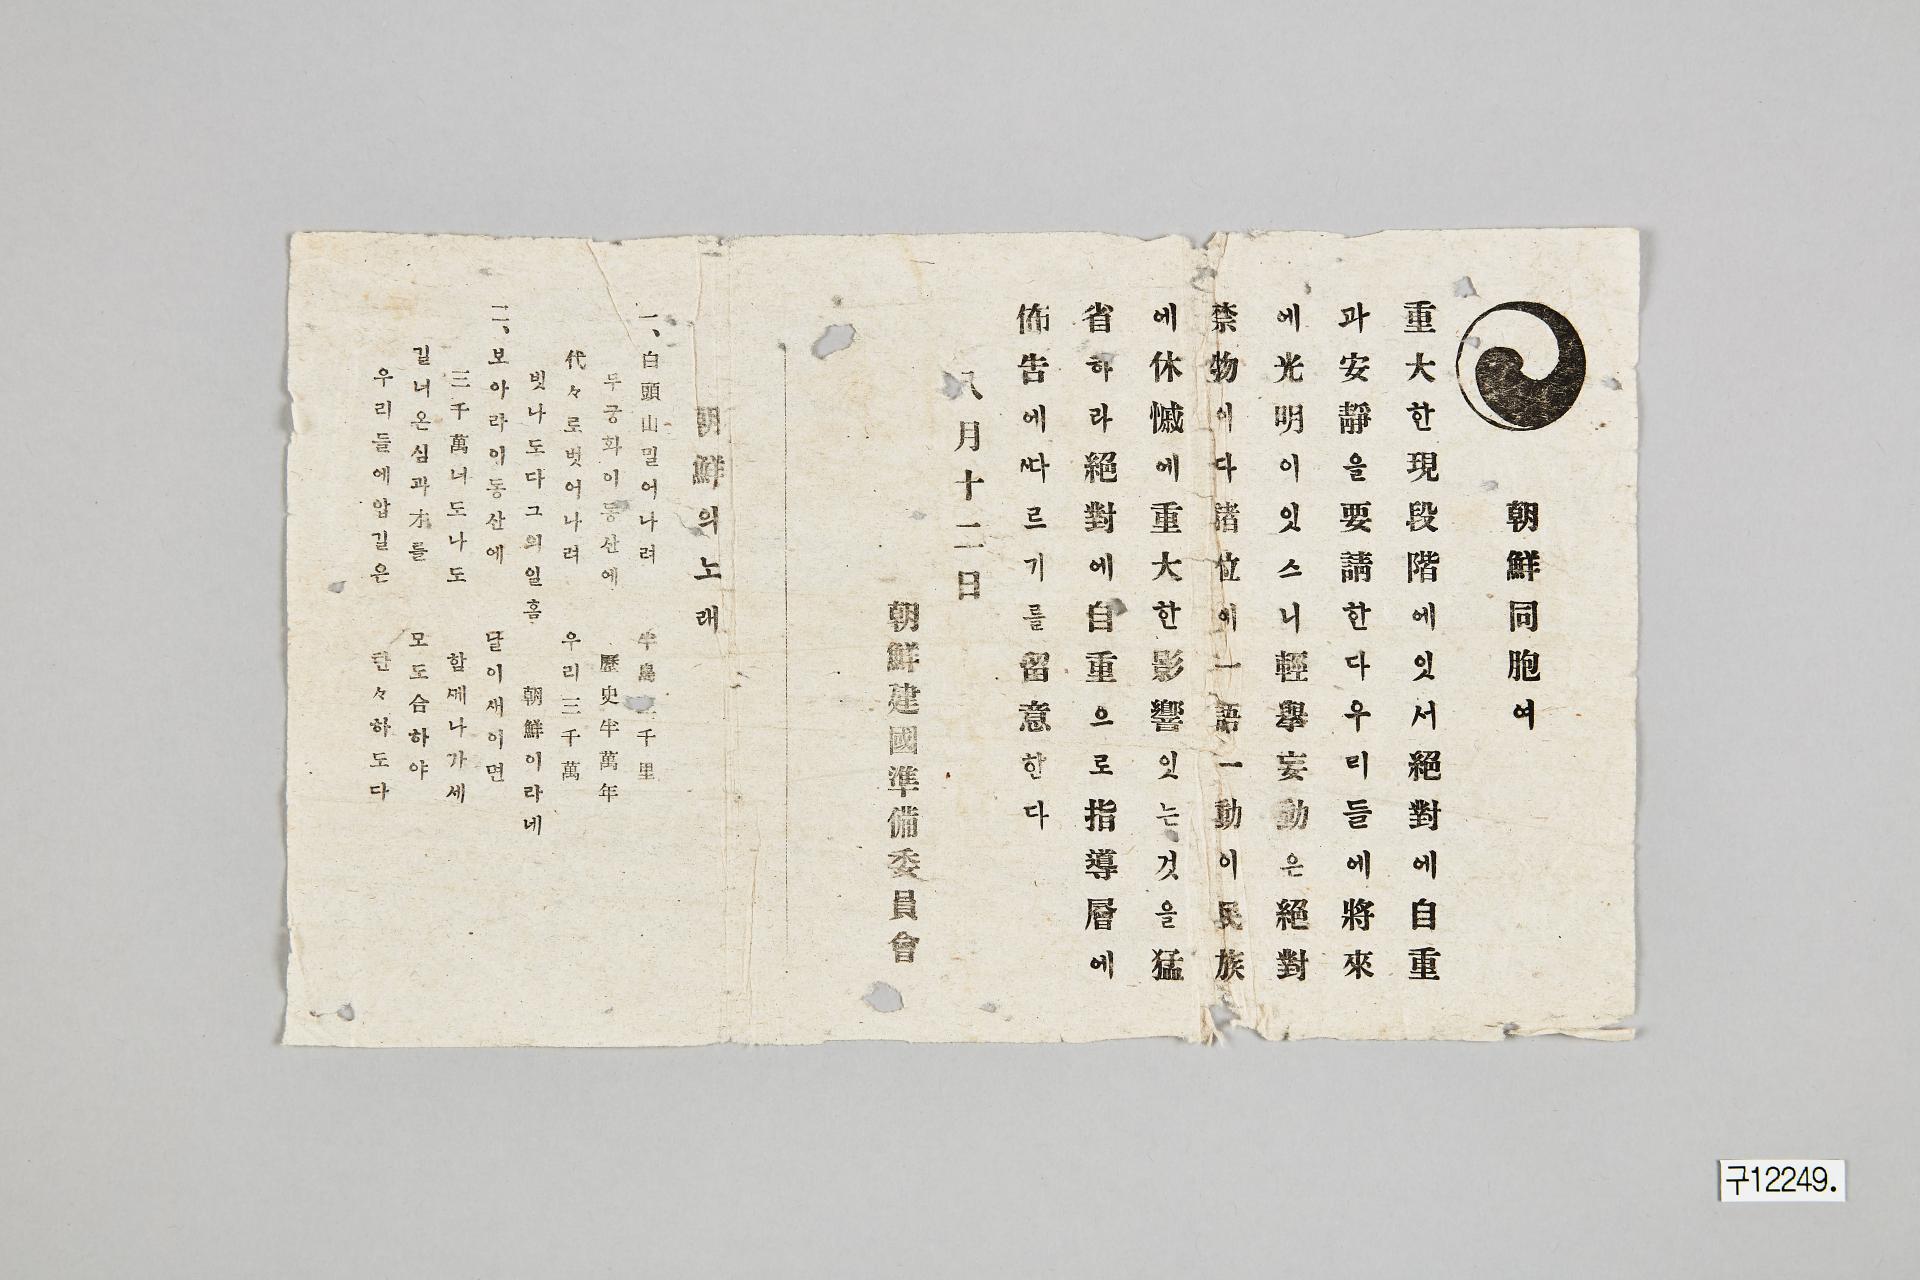 朝鮮同胞여
重大한現段階에잇서絕對에自重
과安靜을要請한다우리들에將來
에光明이잇스니輕擧妄動은絕對
禁物이다諸位에一語一動이民族
에休慽에重大한影響잇는것을猛
省하라絕對에自重으로指導層에
佈告에따르기를留意한다
八月十二日
朝鮮建國準備委員會
朝鮮의노래
一、白頭山밀어나려 半島三千里
무궁화이동산에 歷史半萬年
代々로벗어나려 우리三千萬
빗나도다그의일홈 朝鮮이라네
二、보아라이동산에 달이새이면
三千萬너도나도 함께나가세
길너온심과才를 모도合하야
우리들에압길은 탄々하도다
구12249.